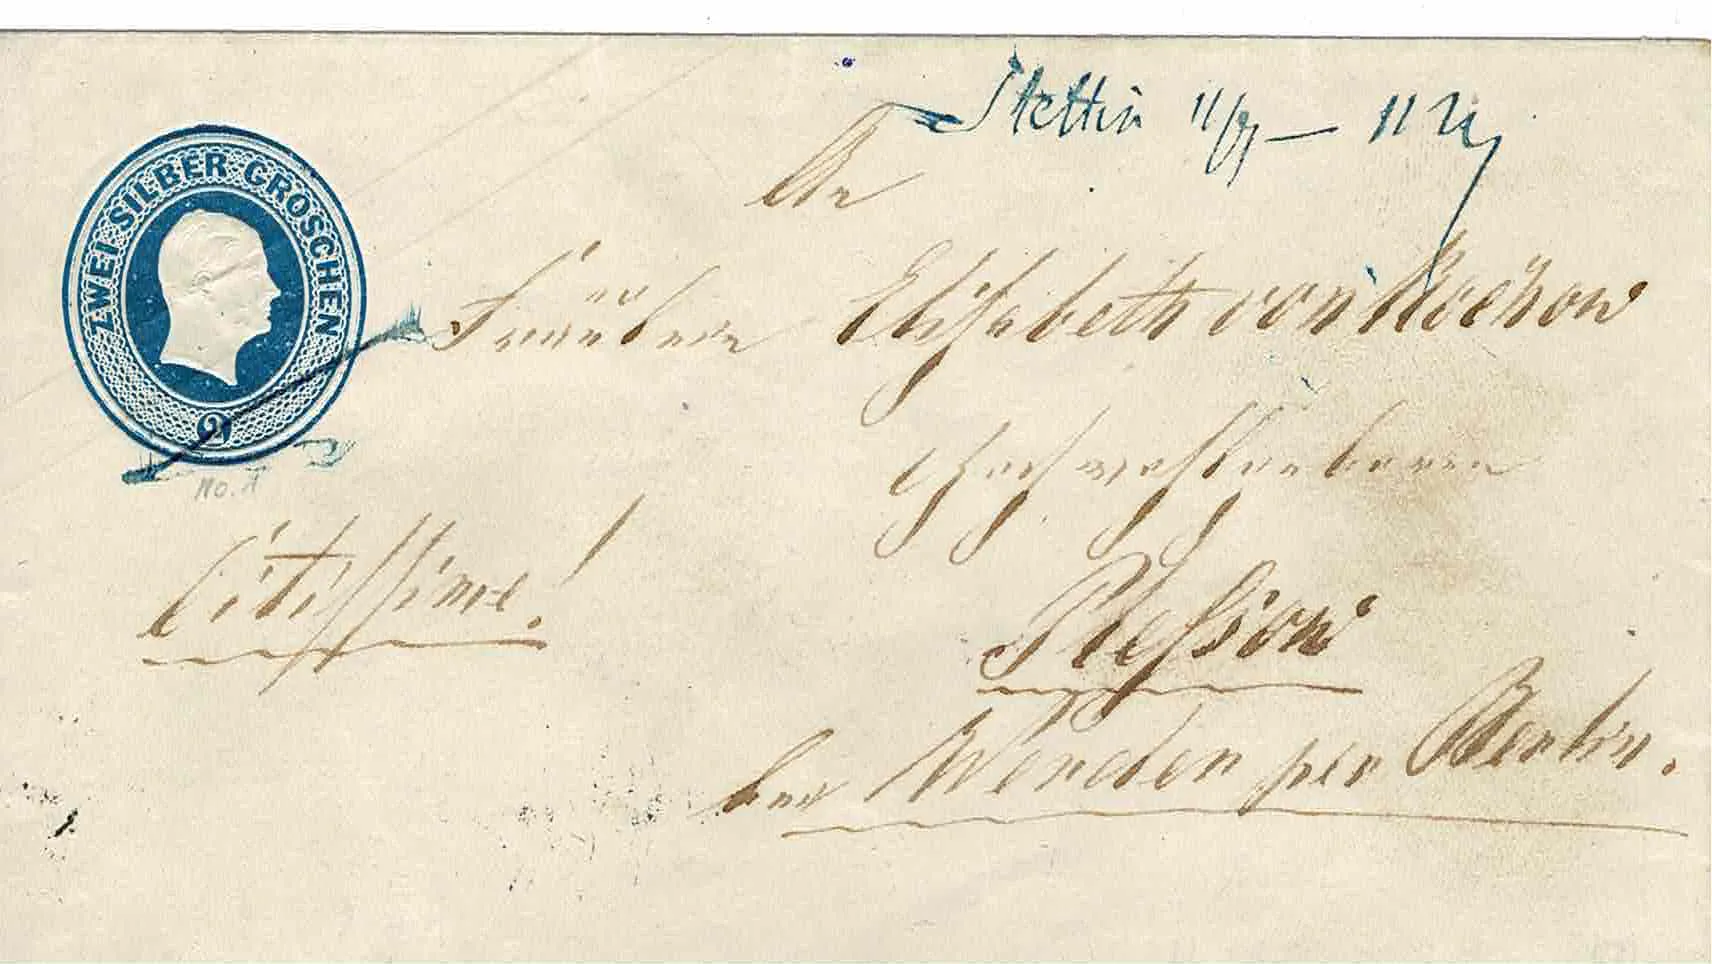 Stettin 11/7 — 11
An
ZWEI SILBER GROSCHEN
2
Fräulein Elisabeth von Rochow
Hochwohlgeboren
No. 1
Citissime!
Plessow
bei Werder per Berlin.